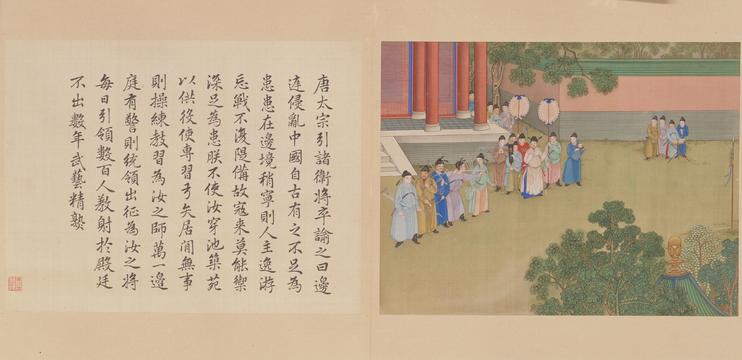 唐太宗引諸衛將卒諭之曰邊
廷侵亂中國自古有之不足為
患患在邊境稍寧則人主逸游
忘戰不復隄備故寇來莫能禦
深足為患朕不使汝穿池築苑
以供役使專習弓矢居閒無事
則操練教習為汝之師萬一邊
庭有警則統領出征為汝之將
每日引領數百人教射於殿廷
不出數年武藝精熟